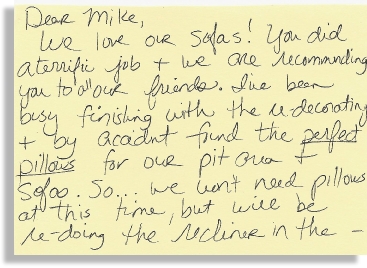 Dear Mike,
We love our sofas! You did
a terrific job + we are recommending
you to all our friends. I've been
busy finishing with the re-decorating
+ by accident found the perfect
pillows for our pit area +
Sofas. So... we won't need pillows
at this time, but will be
re-doing the recliner in the -